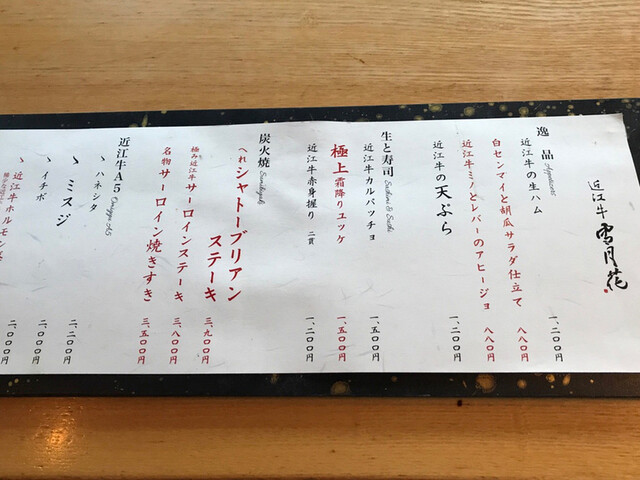 近江牛 雪月花
逸品 Appetizers
近江牛の生ハム 一、二〇〇円
白センマイと胡瓜サラダ仕立て 八八〇円
近江牛ミノとレバーのアヒージョ 八八〇円
近江牛の天ぷら 一、二〇〇円
生と寿司 Sashimi & Sushi
近江牛カルパッチョ 一、五〇〇円
極上霜降りユッケ 一、五〇〇円
近江牛赤身握り 二貫 一、二〇〇円
炭火焼 Sumibiyaki
へれシャトーブリアン
ステーキ 三、九〇〇円
極み近江牛サーロインステーキ 三、八〇〇円
名物サーロイン焼きすき 三、五〇〇円
近江牛A5 Omigyu A5
〻ハネシタ
〻ミスジ 二、二〇〇円
〻イチボ 二、〇〇〇円
〻近江牛ホルモン 二、〇〇〇円